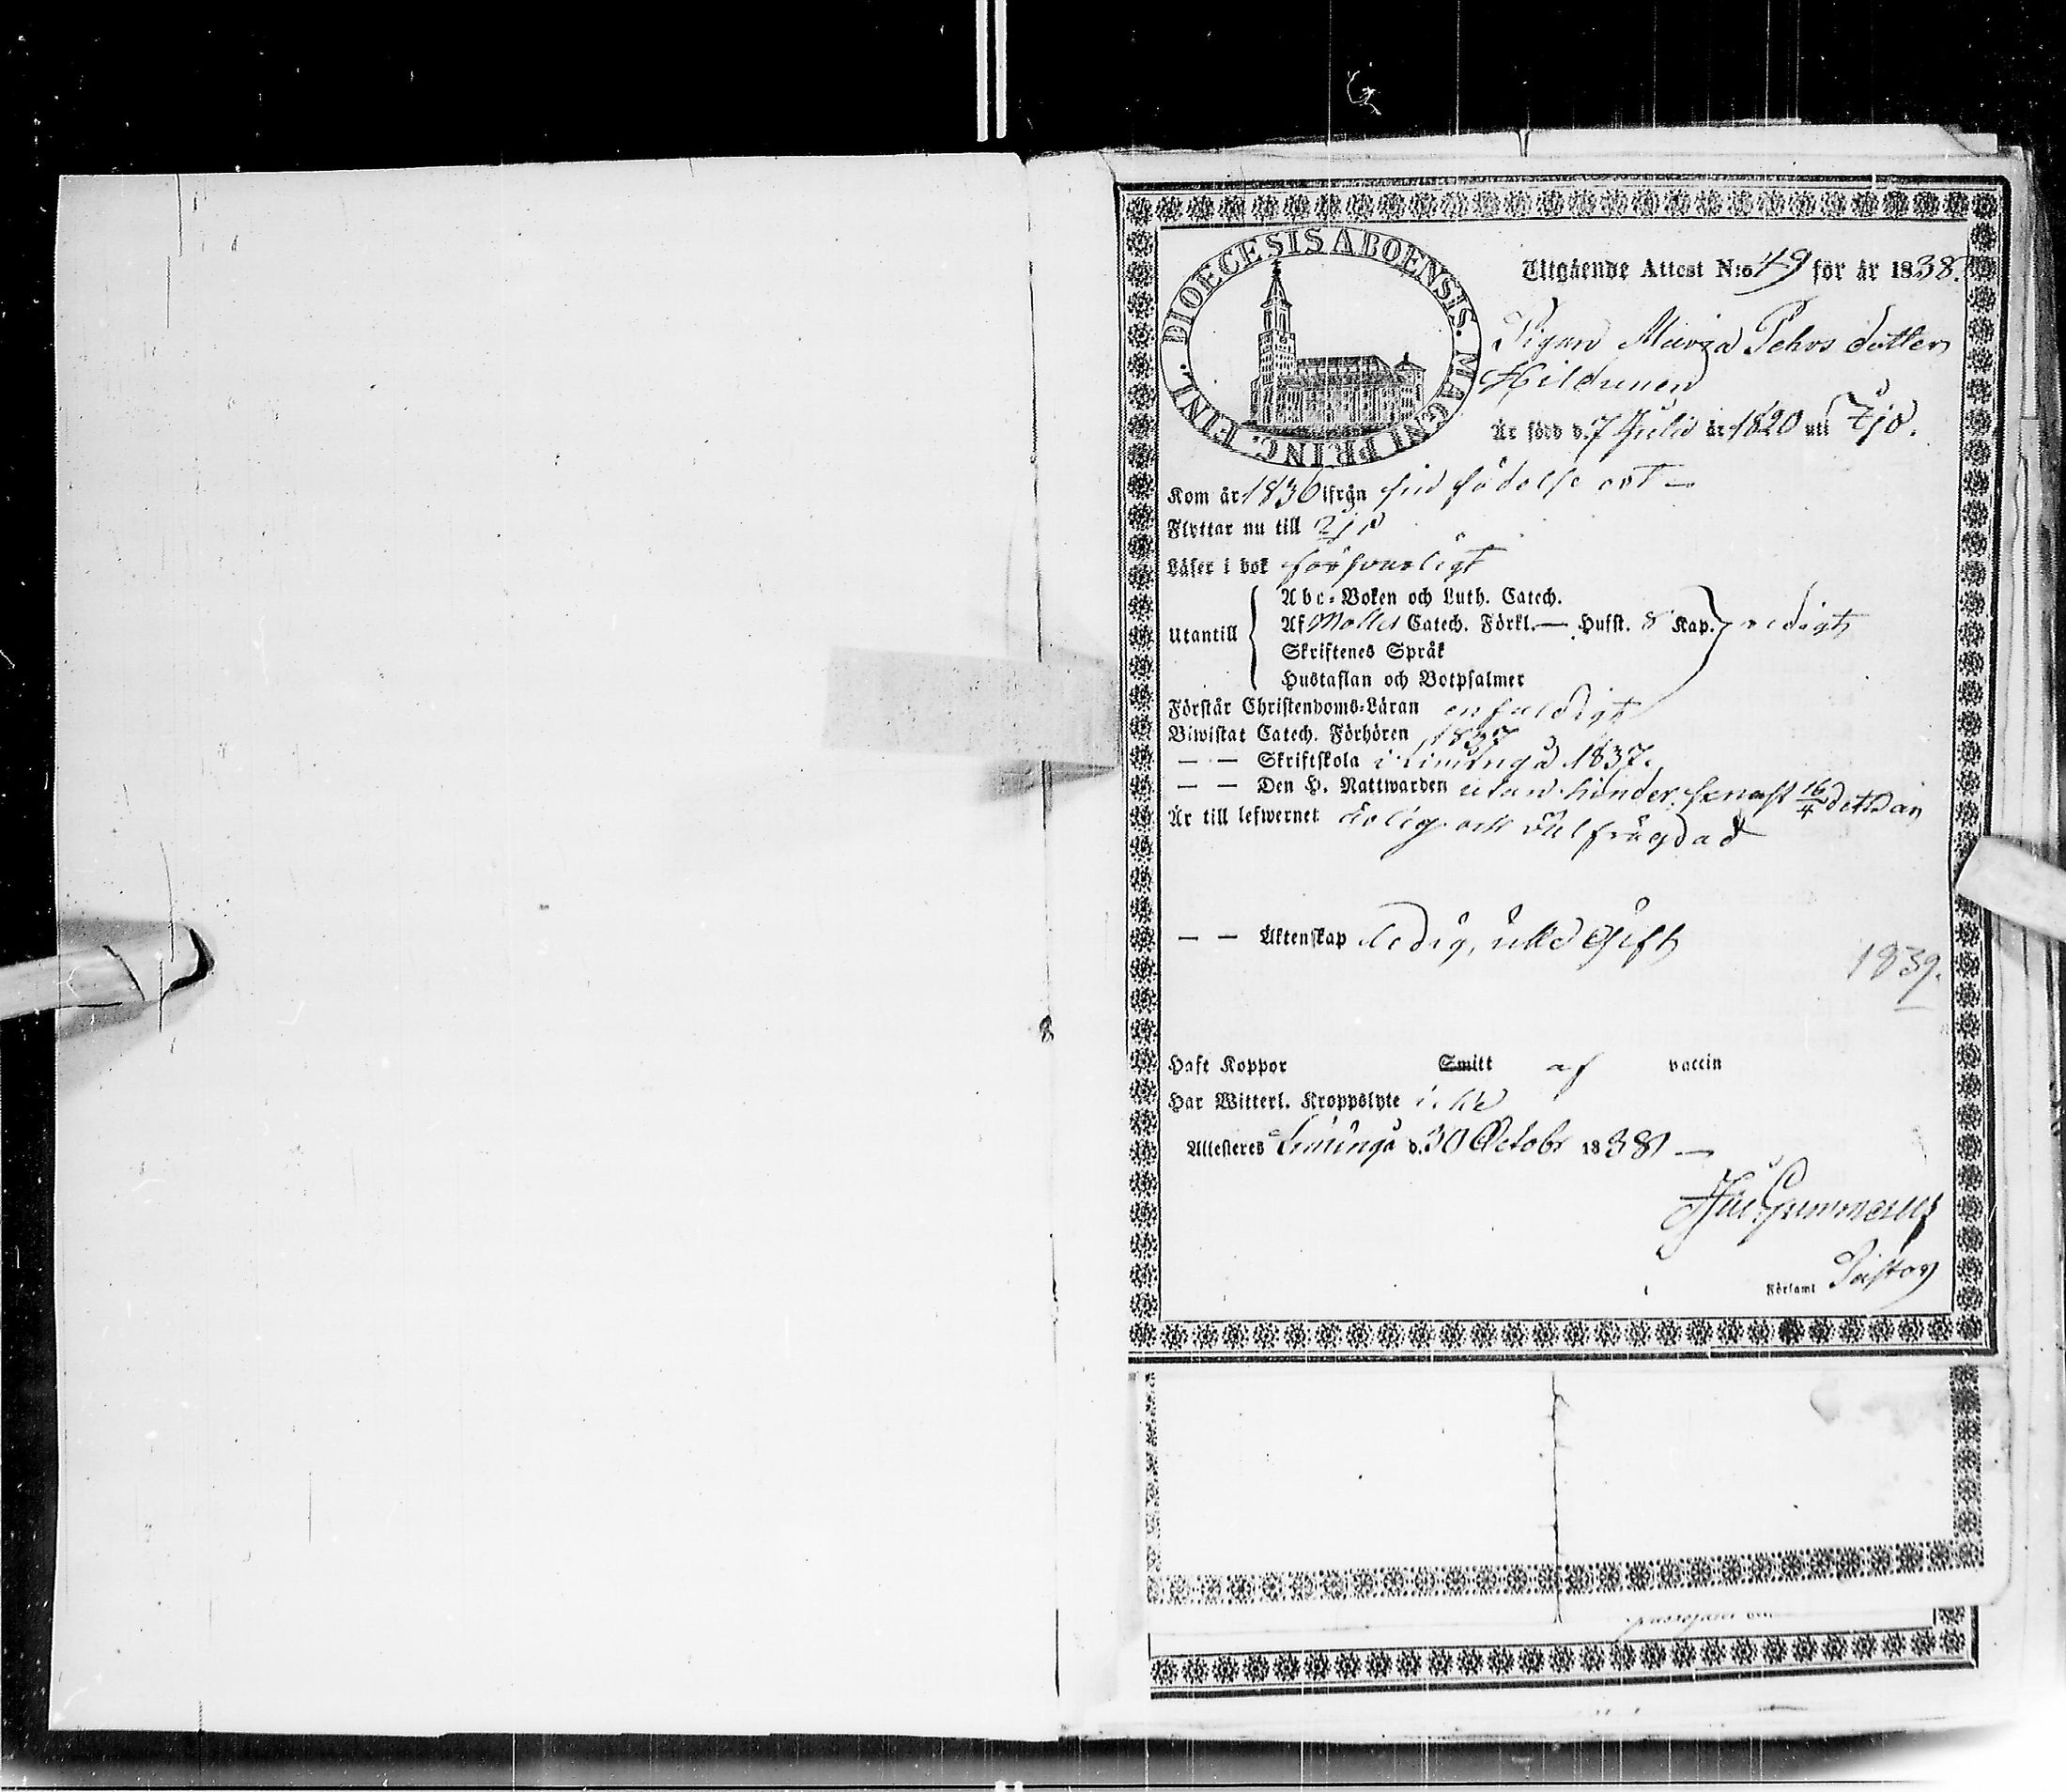 DIOECESIS ABOENSIS. MAGNI PRINC. FINL.
Utgående Attest N:o 49 för år 1838.
Pigan Maria Pehrs dotter
Hildunen
Är född d. 7 Julii år 1820 uti Ijo.
Kom år 1836 ifrån sin födelse ort —
Flyttar nu till Ijo
Läser i bok försvarligt
Utantill
Abc-Boken och Luth. Catech.
Af Möllers Catech. Förkl. — Hufst. 8 Kap. redigt
Skriftenes Språk
Hustaflan och Botpsalmer
Förstår Christendoms-Läran enfaldigt
Biwistat Catech. Förhören 1837
— — Skriftskola i Limingå 1837.
— — Den H. Nattwarden utan hinder senast 16/4 detta år
Är till lefwernet ärlig och välfrägdad
— — Äktenskap ledig, icke Gift
1839.
Haft Koppor Smitt af vaccin
Har Witterl. Kroppslyte icke
Attesteres Limingå d. 30 Octobr 1838 —
Gummerus
Församl Pastor